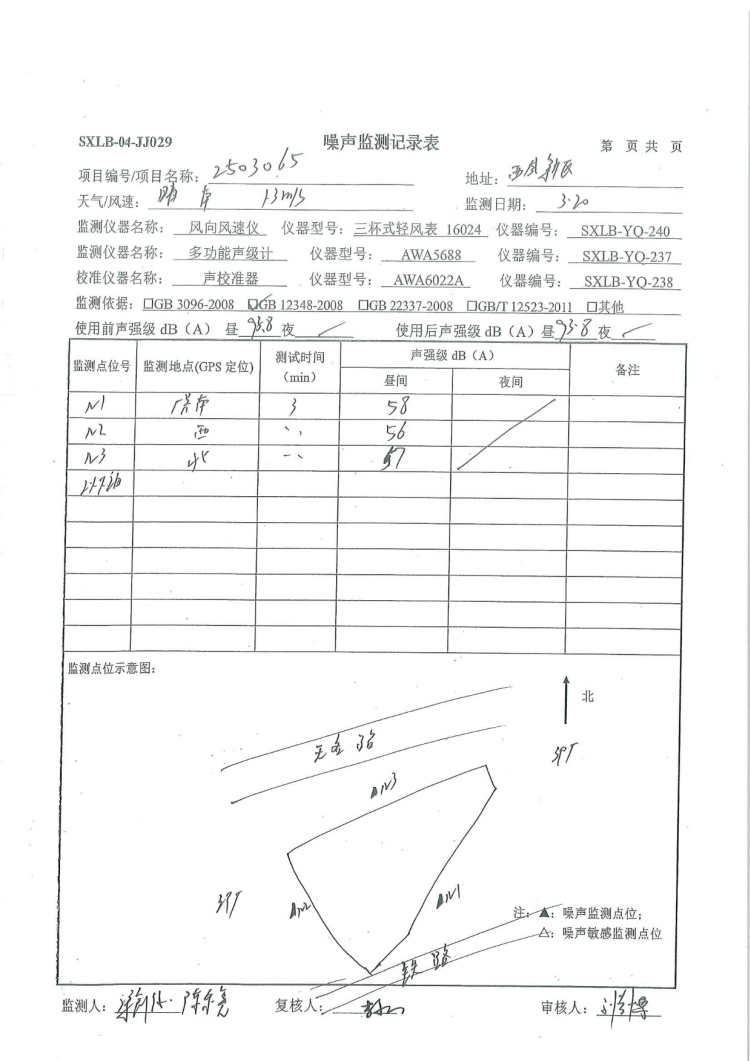 SXLB-04-JJ029 噪声监测记录表 第 页 共 页
项目编号/项目名称: 2503065 地址:
天气/风速: 晴 南 1.3m/s 监测日期: 3.20
监测仪器名称: 风向风速仪 仪器型号: 三杯式轻风表 16024 仪器编号: SXLB-YQ-240
监测仪器名称: 多功能声级计 仪器型号: AWA5688 仪器编号: SXLB-YQ-237
校准仪器名称: 声校准器 仪器型号: AWA6022A 仪器编号: SXLB-YQ-238
监测依据: □GB 3096-2008 ☑GB 12348-2008 □GB 22337-2008 □GB/T 12523-2011 □其他
使用前声强级 dB(A) 昼 93.8 夜 使用后声强级 dB(A) 昼 93.8 夜
监测点位号 监测地点(GPS 定位) 测试时间(min) 声强级 dB(A) 备注
昼间 夜间
N1 厂界南 3 58
N2 西 〃 56
N3 北 〃 57
监测点位示意图:
北
路
▲N3
▲N2
▲N1
注: ▲: 噪声监测点位;
△: 噪声敏感监测点位
铁路
监测人: 复核人: 审核人: